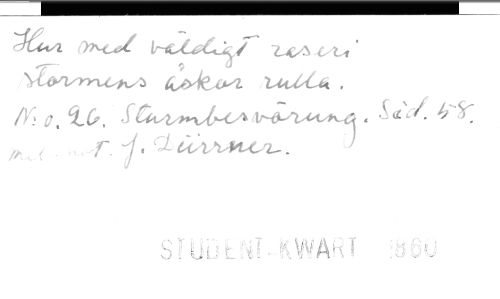 Hur med väldigt raseri
stormens åskor rulla.
N:o. 26. Sturmbesvörung. Säd. 58.
J. Dürrner.
STUDENT-KWART 1860